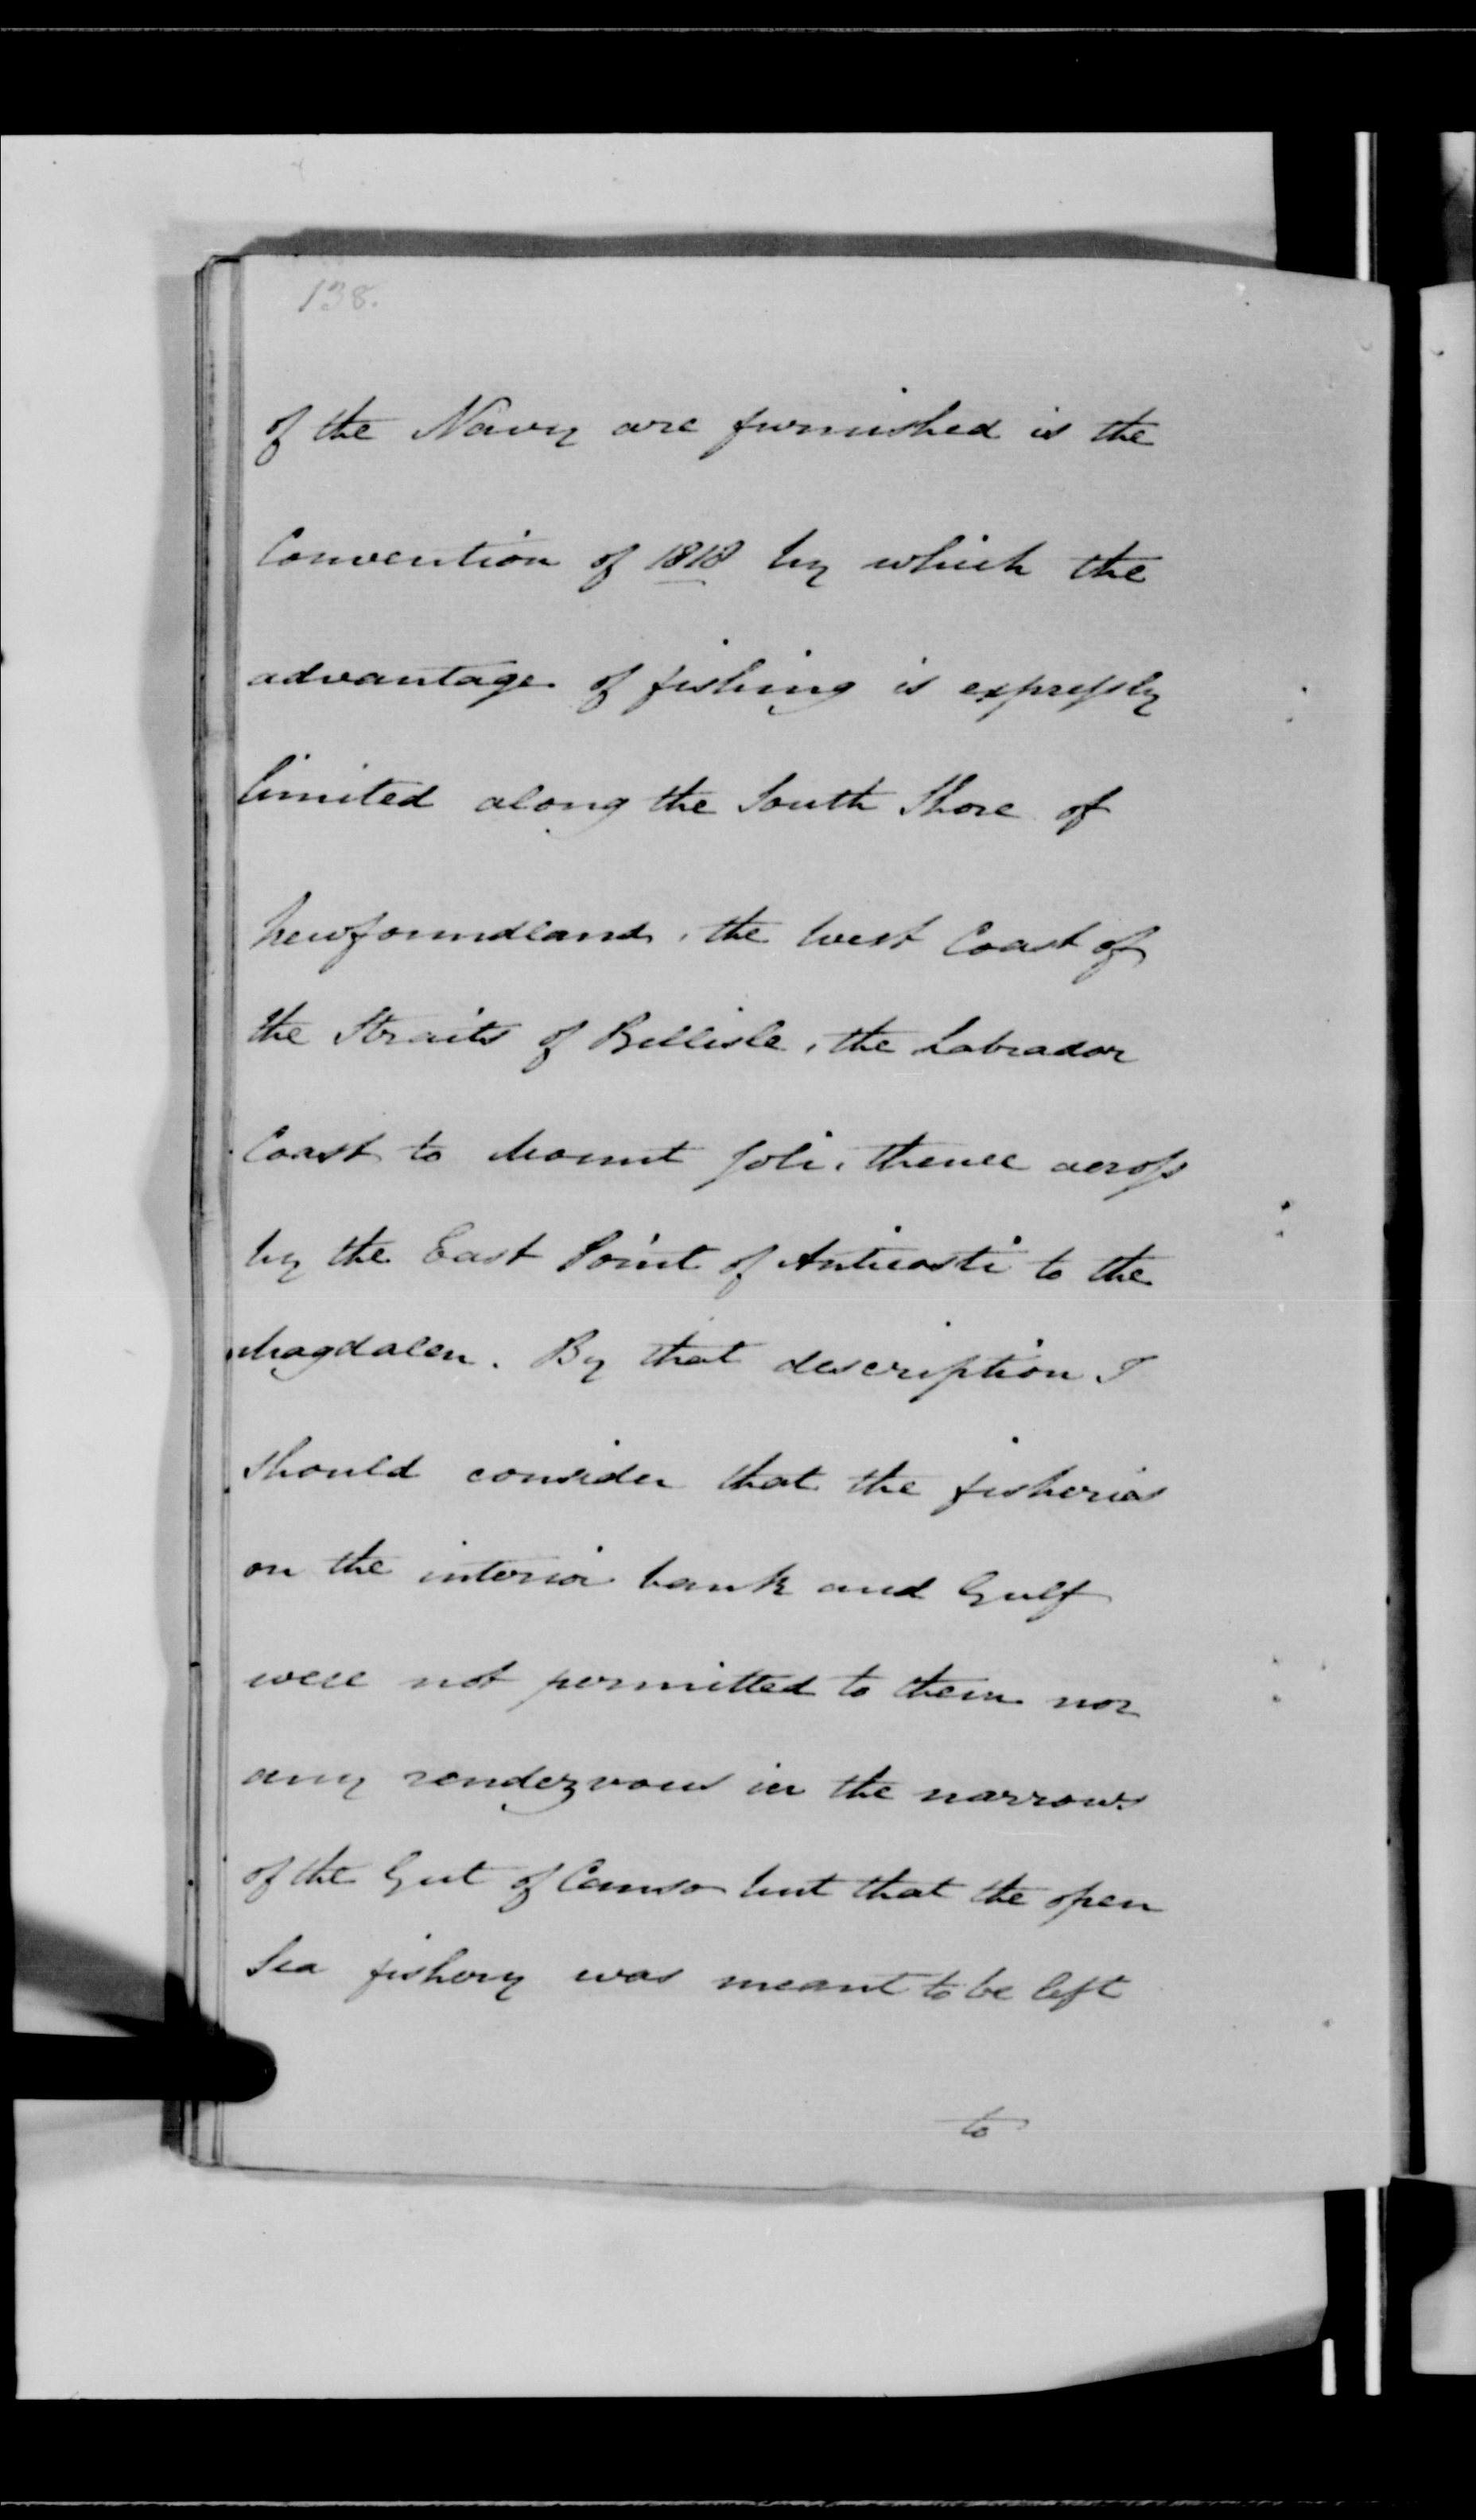 138.
of the Navy are furnished is the
Convention of 1818 by which the
advantage of fishing is expressly
limited along the South Shore of
Newfoundland, the West Coast of
the Straits of Bellisle, the Labrador
Coast to Mount Joli, thence across
by the East Point of Anticosti to the
Magdalen. By that description I
should consider that the fisheries
on the interior bank and Gulf
were not permitted to them nor
any rendezvous in the narrows
of the Gut of Canso but that the open
Sea fishery was meant to be left
to